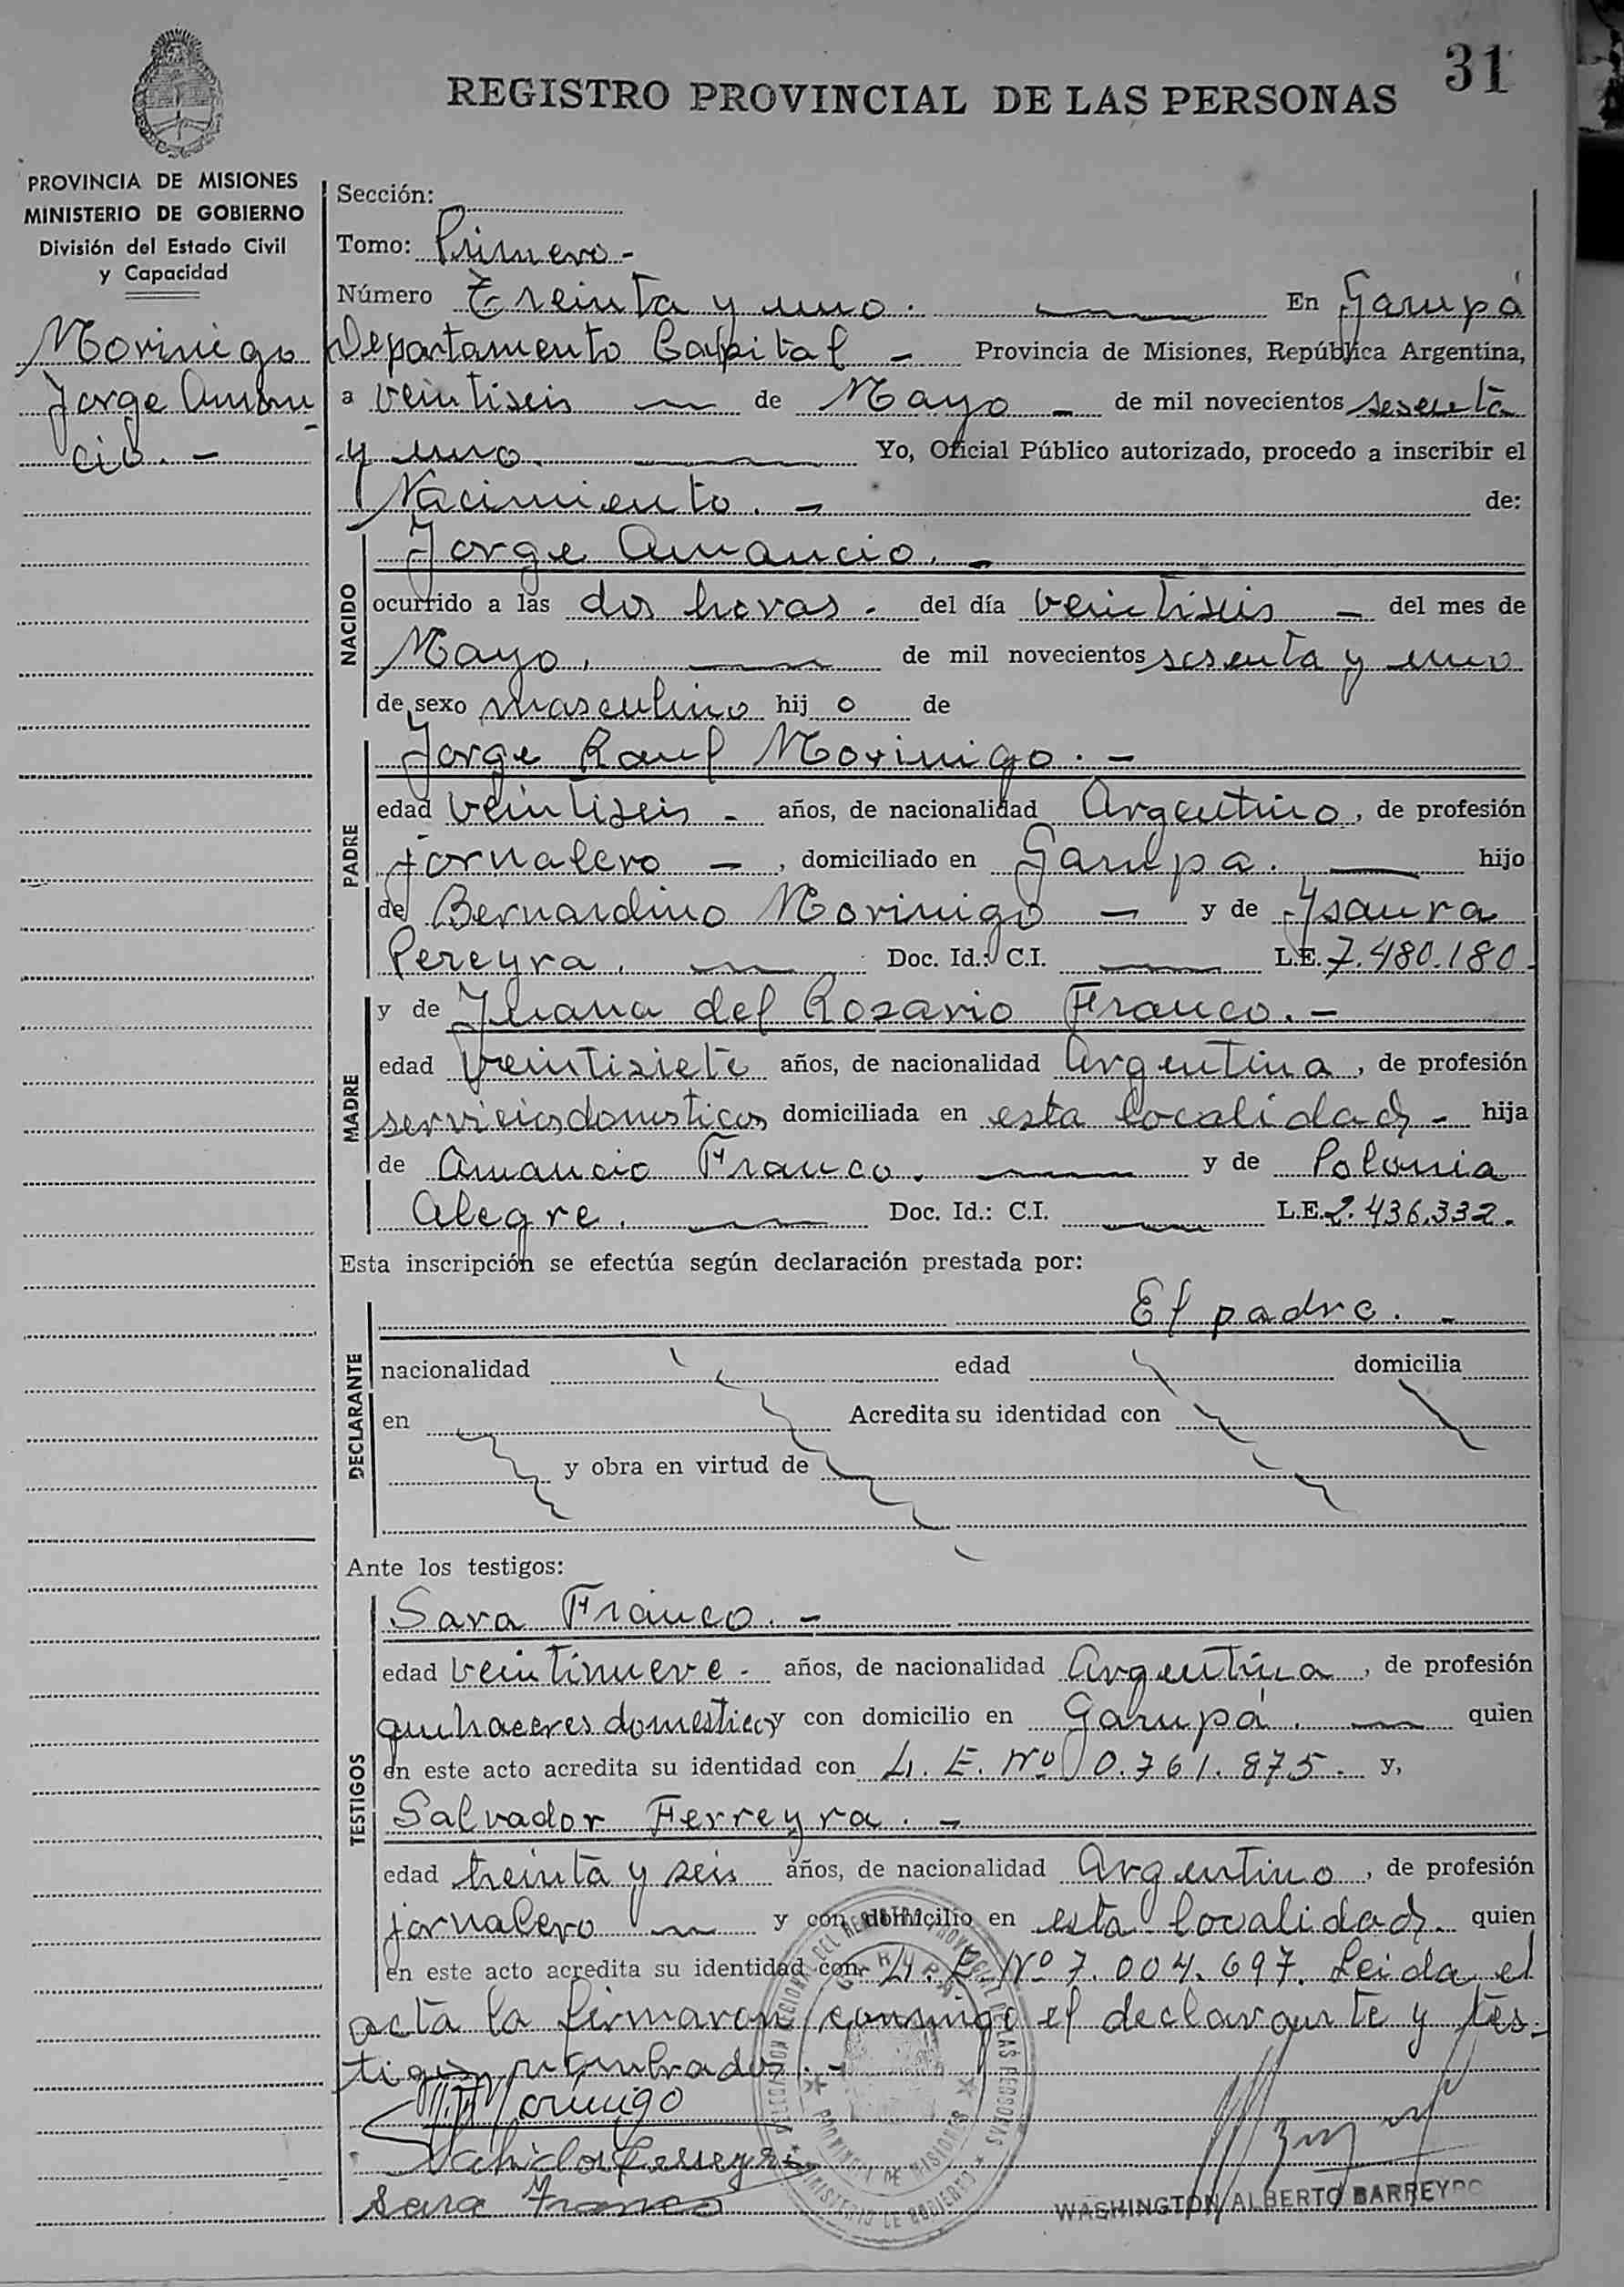 31
REGISTRO PROVINCIAL DE LAS PERSONAS
PROVINCIA DE MISIONES
MINISTERIO DE GOBIERNO
División del Estado Civil
y Capacidad
Morinigo
Jorge Aman-
cio. -
Sección:
Tomo: Primero -
Número Treinta y uno. En Garupá
Departamento Capital - Provincia de Misiones, República Argentina,
a veintiseis de Mayo - de mil novecientos sesenta
y uno. Yo, Oficial Público autorizado, procedo a inscribir el
Nacimiento. - de:
NACIDO
Jorge Amancio. -
ocurrido a las dos horas - del día veintiseis - del mes de
Mayo, de mil novecientos sesenta y uno
de sexo masculino hij o de
PADRE
Jorge Raul Morinigo. -
edad veintiseis - años, de nacionalidad Argentino, de profesión
jornalero -, domiciliado en Garupa. hijo
de Bernardino Morinigo - y de Ysaura
Pereyra. Doc. Id.: C.I. L.E. 7.480.180
MADRE
y de Juana del Rosario Franco. -
edad veintisiete años, de nacionalidad Argentina, de profesión
servicios domesticos domiciliada en esta localidad - hija
de Amancio Franco. y de Polonia
Alegre. Doc. Id.: C.I. L.E. 2.436.332.
Esta inscripción se efectúa según declaración prestada por:
DECLARANTE
El padre. -
nacionalidad edad domicilia
en Acredita su identidad con
y obra en virtud de
Ante los testigos:
TESTIGOS
Sara Franco. -
edad veintinueve - años, de nacionalidad Argentina, de profesión
quehaceres domestico y con domicilio en Garupá. quien
en este acto acredita su identidad con L. E. Nº 0.761.875. y,
Salvador Ferreyra. -
edad treinta y seis años, de nacionalidad Argentino, de profesión
jornalero y con domicilio en esta localidad. quien
en este acto acredita su identidad con L. E. Nº 7.004.697. Leida el
acta la firmaron conmigo el declarante y tes-
tigos nombrados. -
Morinigo
Salvador Ferreyra
Sara Franco
WASHINGTON ALBERTO BARREYRO
GARUPA
PROVINCIA DE MISIONES
MINISTERIO DE GOBIERNO